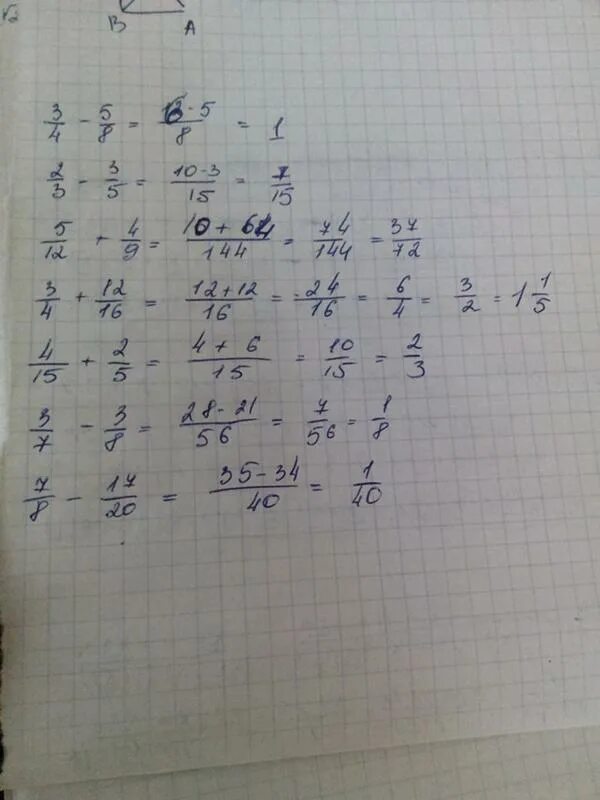 √2
B A
3/4 - 5/8 = 6-5/8 = 1
2/3 - 3/5 = 10-3/15 = 7/15
5/12 + 4/9 = 10+64/144 = 74/144 = 37/72
3/4 + 12/16 = 12+12/16 = 24/16 = 6/4 = 3/2 = 1 1/5
4/15 + 2/5 = 4+6/15 = 10/15 = 2/3
3/7 - 3/8 = 28-21/56 = 7/56 = 1/8
7/8 - 17/20 = 35-34/40 = 1/40